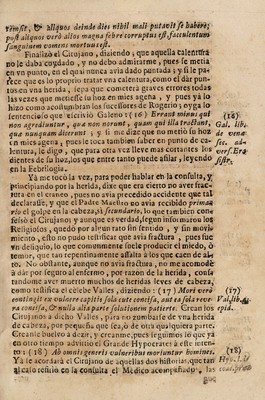 remisit, & aliquos deinde dies nihil mali putavit se habere;
post aliquos verò alios magna febre corruptus est, sacculentum
sanguinem vomens mortuus est.
Finalizò el Cirojano, diziendo, que aquella calentura
no le daba cuydado, y no debo admitarme, pues se metia
en vn punto, en el quai nunca avia dado puntada; y si le pa-
rece que es lo proprio tratar vna calentura, como el dàr pun-
tos en vna herida, sepa que cometerà graves errores todas
las vezes que metiesse su hoz en mies agena, y pues yà lo
hizo como acostumbran los sucessores de Rogerio, oyga lo
sentencioso que escriviò Galeno: (16) Errant minus qui
non agrediuntur, quæ non norunt, quam qui illa tractant,
quæ nunquam diicerunt; y si me dize que no metiò su hoz
en mies agena, pues le toca tambien saber en punto de ca-
lentura, le digo, que para otra vez lleve mas cortantes los
dientes de su hoz, los que entre tanto puede afilar, leyendo
en la Febrilogia.
Yà me tocò la vez, para poder hablar en la consulta, y
principiando por la herida, dixe que era cierto no aver frac-
tura en el craneo, pues no avia precedido accidente que tal
declarasse, y que el Padre Maestro no avia recibido prima-
rio el golpe en la cabeza, si secundario, lo que tambien con-
fessò el Cirojano y aunque es verdad, segun informaron los
Religiosos, quedò por algun rato sin sentido, y sin movi-
miento, esto no pudo testificar que avia fractura, pues fue
vn deliquio, lo que comunmente suele producir el miedo, ò
temor, que tan repentinamente assalta à los que caen de al-
to. No obstante, aunque no avia fractura, no me acomodè
à dàr por seguro al enfermo, por razon de la herida, cons-
tandome aver muerto muchos de heridas leves de cabeza,
como testifica el celebre Valles, diziendo: (17) Mori verò
contingit ex vulnere capitis sola cute concisa, aut ea sola reve-
ra concisa, & nulla alia parte solutionem patiente. Crean los
Cirojanos à dicho Valles, para no zumbarse de vna herida
de cabeza, por pequeña que sea, ò de otra qualquiera parte.
Creanme buelvo à dezir, y creanme, pues seguimos lo que yà
en otro tiempo advirtiò el Grande Hypocrates à este inten-
to: (18) Ab omnis generis vulneribus moriuntur homines.
Yà le acordarà el Cirojano de aquellas dos historias, que tan
al caso refiriò en la consulta el Medico acompañado; las
(16)
Gal. lib.
de venæ
sec. ad-
vers. Era
sistr.
(17)
Val. lib. 4.
epid.
(18)
Hyp. l. d